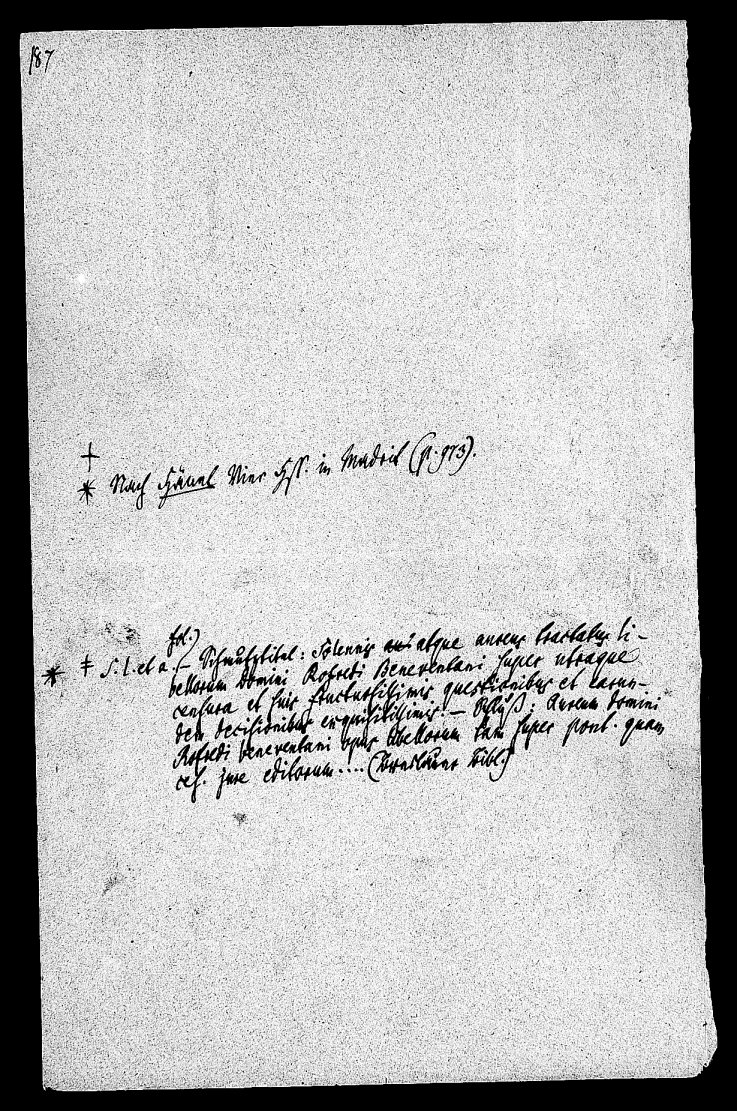 187
+
* Nach Hänel Vier Hss. in Madrid (p. 973).
fol.)
* ‡ S. l. et a. (– Schmutztitel: Solennis atque aureus tractatus li-
bellorum Domini Rofredi Beneventani super utraque
censura et suis fructuosissimis questionibus et earun-
dem decisionibus exquisitissimis. – Schluß: Aureum Domini
Rofredi beneventani opus libellorum tam super pont. quam
ces. jure editorum .... (Breslauer Bibl.)